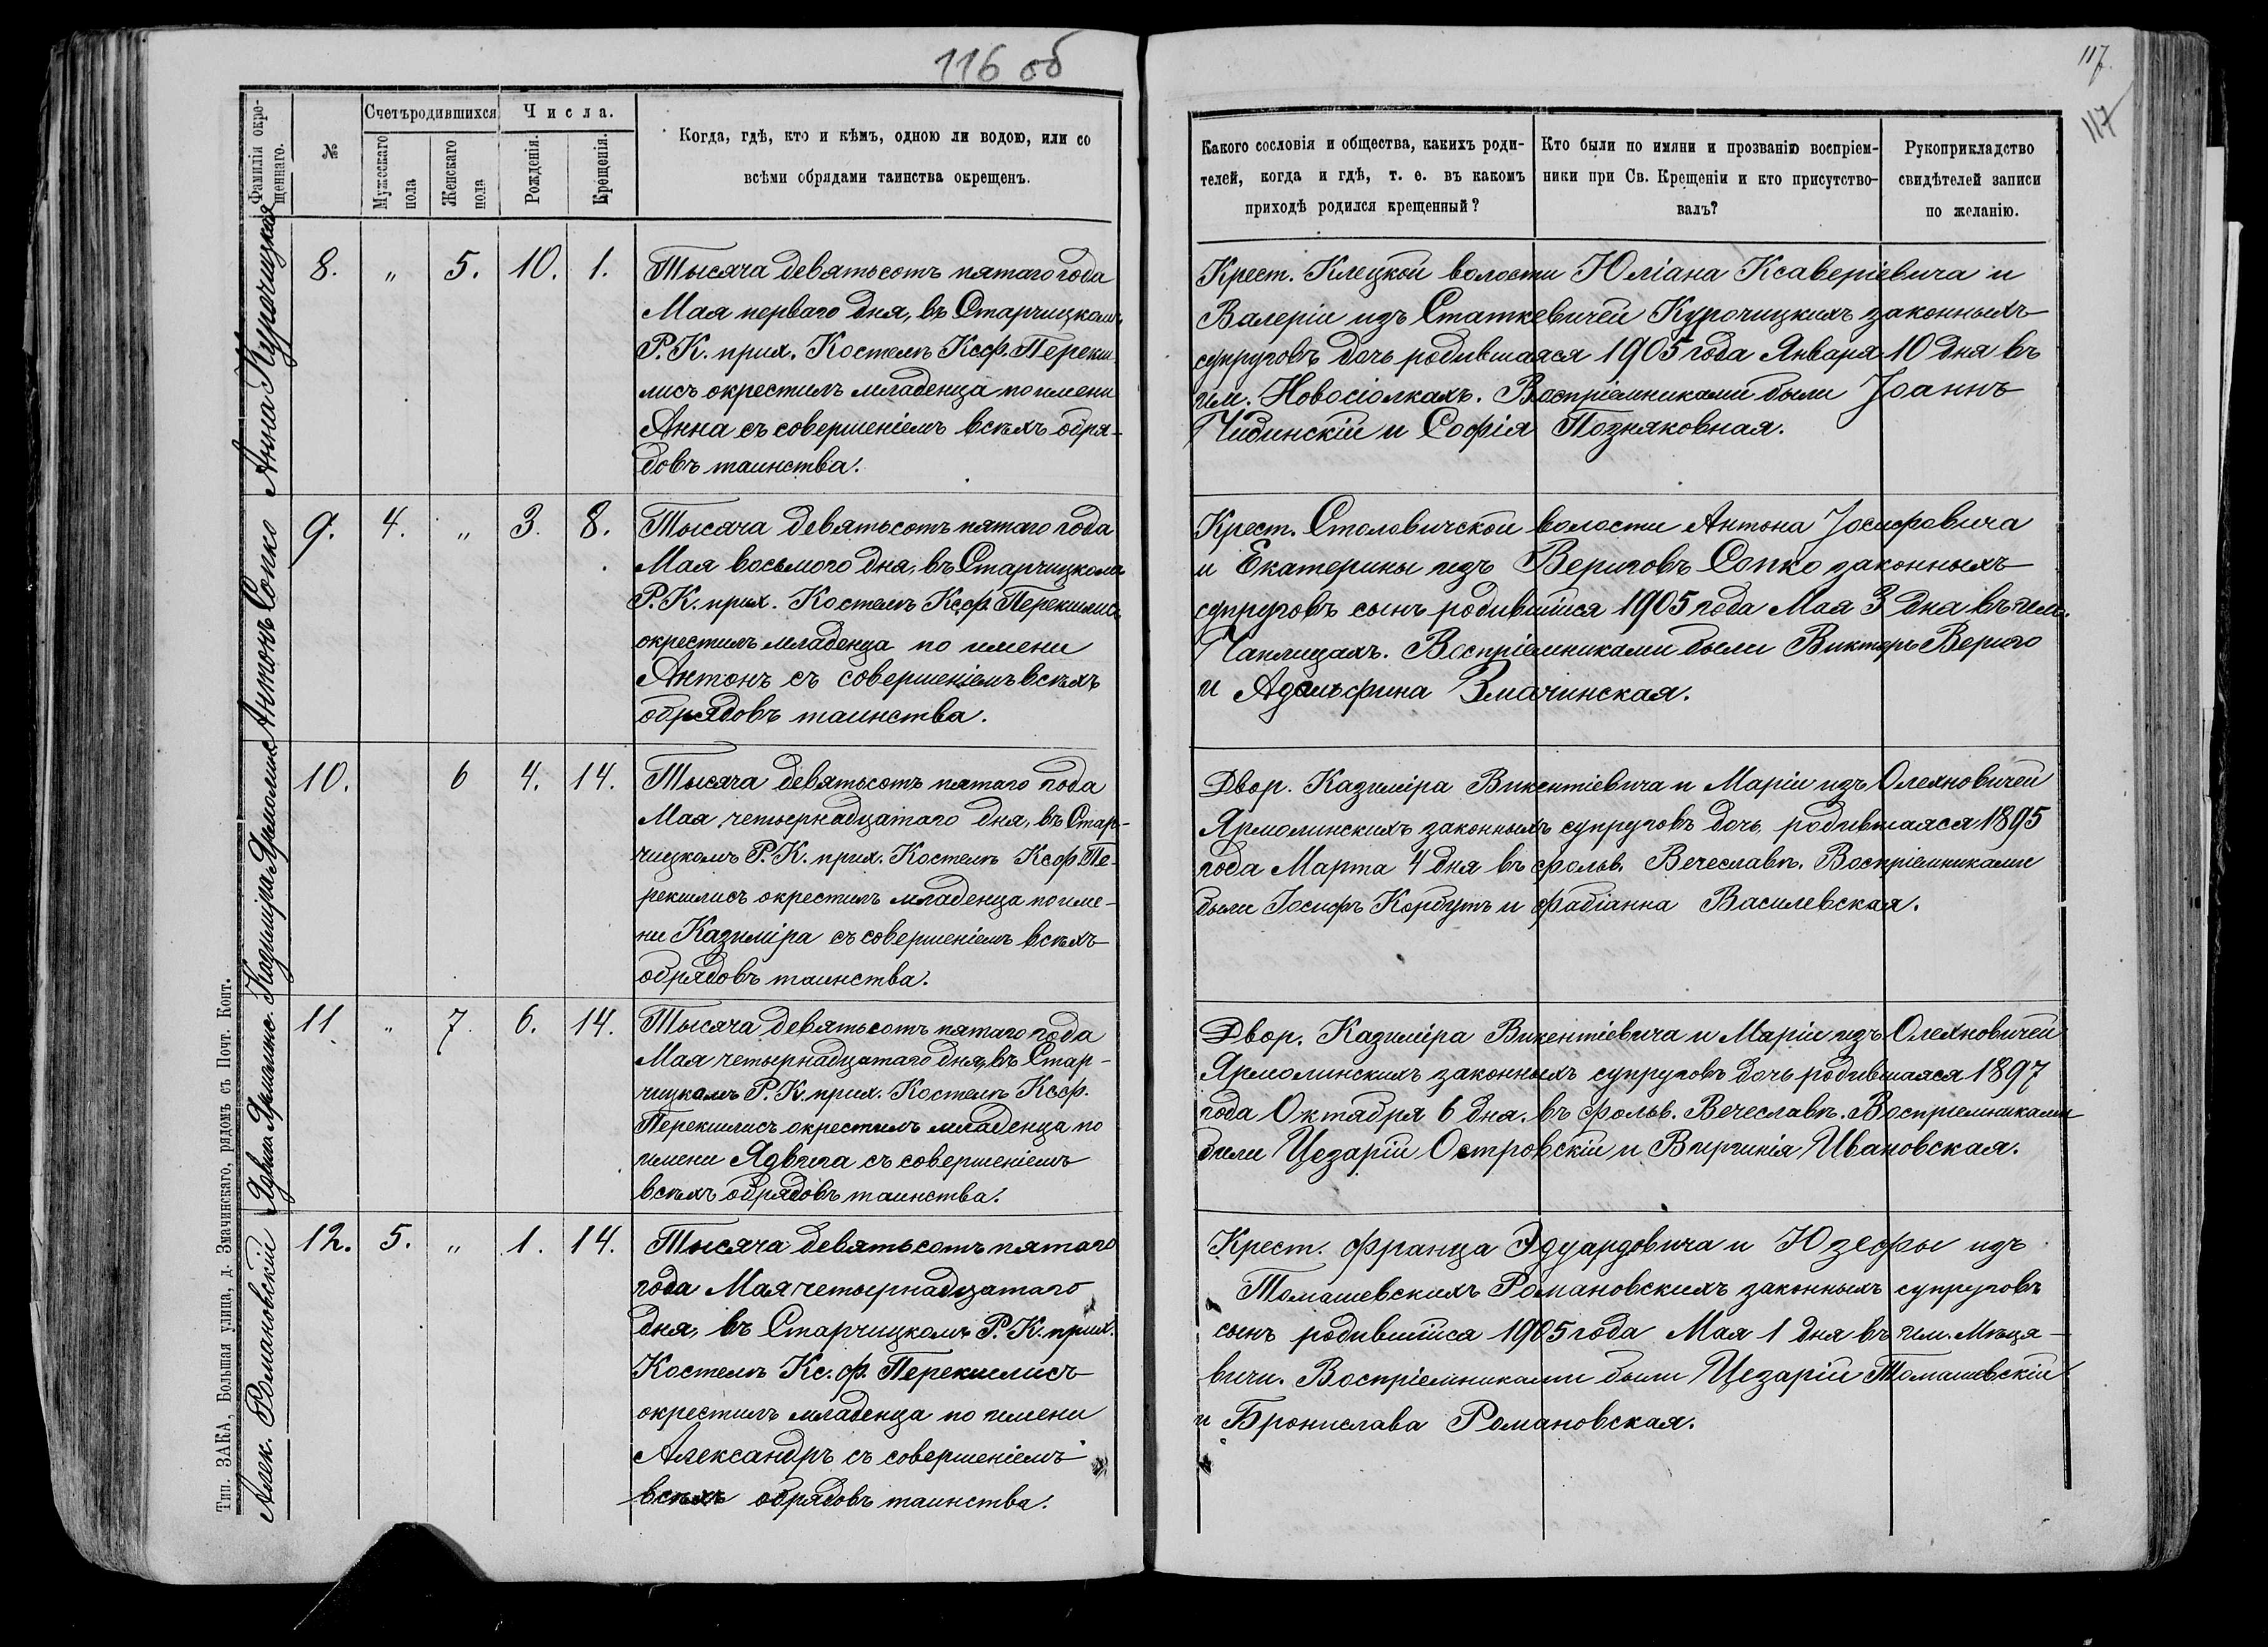 116 об
117.
117
Фамилія окре-
щеннаго.
№
Счетъ родившихся
Мужескаго
пола
Женскаго
пола
Числа.
Рожденія.
Крещенія.
Когда, гдѣ, кто и кѣмъ, одною ли водою, или со
всѣми обрядами таинства окрещенъ.
Какого сословія и общества, какихъ роди-
телей, когда и гдѣ, т. е. въ какомъ
приходѣ родился крещенный?
Кто были по имяни и прозванію воспріем-
ники при Св. Крещеніи и кто присутство-
валъ?
Рукоприкладство
свидѣтелей записи
по желанію.
Анна Курочицкая
8. „ 5. 10. 1.
Тысяча девятьсотъ пятаго года
Мая перваго дня, въ Старчицкомъ
Р. К. прих. Костелѣ Кс. Ф. Переки-
лисъ окрестилъ младенца по имени
Анна съ совершеніемъ всѣхъ обря-
довъ таинства.
Крест. Клецкой волости Юліана Ксаверіевича и
Валеріи изъ Статкевичей Курочицкихъ законныхъ
супруговъ дочь родившаяся 1905 года Января 10 дня въ
им. Новосіолкахъ. Воспріемниками были Іоаннъ
Чидинскій и Софія Позняковная.
Антонъ Сопко
9. 4. „ 3. 8.
Тысяча девятьсотъ пятаго года
Мая восьмого дня, въ Старчицкомъ
Р. К. прих. Костелѣ Кс. Ф. Перекилисъ
окрестилъ младенца по имени
Антонъ съ совершеніемъ всѣхъ
обрядовъ таинства.
Крест. Столовичской волости Антона Іосифовича
и Екатерины изъ Вериговъ Сопко законныхъ
супруговъ сынъ родившійся 1905 года Мая 3 дня въ им.
Чаплицахъ. Воспріемниками были Викторъ Вериго
и Адольфина Змачинская.
Казиміра Ярмолинс
10. 6 4. 14.
Тысяча девятьсотъ пятаго года
Мая четырнадцатаго дня, въ Стар-
чицкомъ Р. К. прих. Костелѣ Кс. Ф. Пе-
рекилисъ окрестилъ младенца по име-
ни Казиміра съ совершеніемъ всѣхъ
обрядовъ таинства.
Двор. Казиміра Викентіевича и Маріи изъ Олехновичей
Ярмолинскихъ законныхъ супруговъ дочь родившаяся 1895
года Марта 4 дня въ фольв. Вечеславѣ. Воспріемниками
были Іосифъ Корбутъ и Фабіанна Василевская.
Ядвига Ярмолинс.
11 „ 7. 6. 14.
Тысяча девятьсотъ пятаго года
Мая четырнадцатаго дня, въ Стар-
чицкомъ Р. К. прих. Костелѣ Кс. Ф.
Перекилисъ окрестилъ младенца по
имени Ядвига съ совершеніемъ
всѣхъ обрядовъ таинства.
Двор. Казиміра Викентіевича и Маріи изъ Олехновичей
Ярмолинскихъ законныхъ супруговъ дочь родившаяся 1897
года Октября 6 дня. въ фольв. Вечеславѣ. Воспріемниками
были Цезарій Островскій и Виргинія Ивановская.
Алек. Романовскій
12. 5. „ 1. 14.
Тысяча девятьсотъ пятаго
года Мая четырнадцатаго
дня, въ Старчицкомъ Р. К. прих.
Костелѣ Кс. Ф. Перекилисъ
окрестилъ младенца по имени
Александръ съ совершеніемъ
всѣхъ обрядовъ таинства.
Крест. Франца Эдуардовича и Юзефы изъ
Томашевскихъ Романовскихъ законныхъ супруговъ
сынъ родившійся 1905 года Мая 1 дня въ им. Мѣця-
вичи. Воспріемниками были Цезарій Томашевскій
и Бронислава Романовская.
Тип. ЗАКА, Большая улица, д. Змачинскаго, рядомъ съ Почт. Конт.